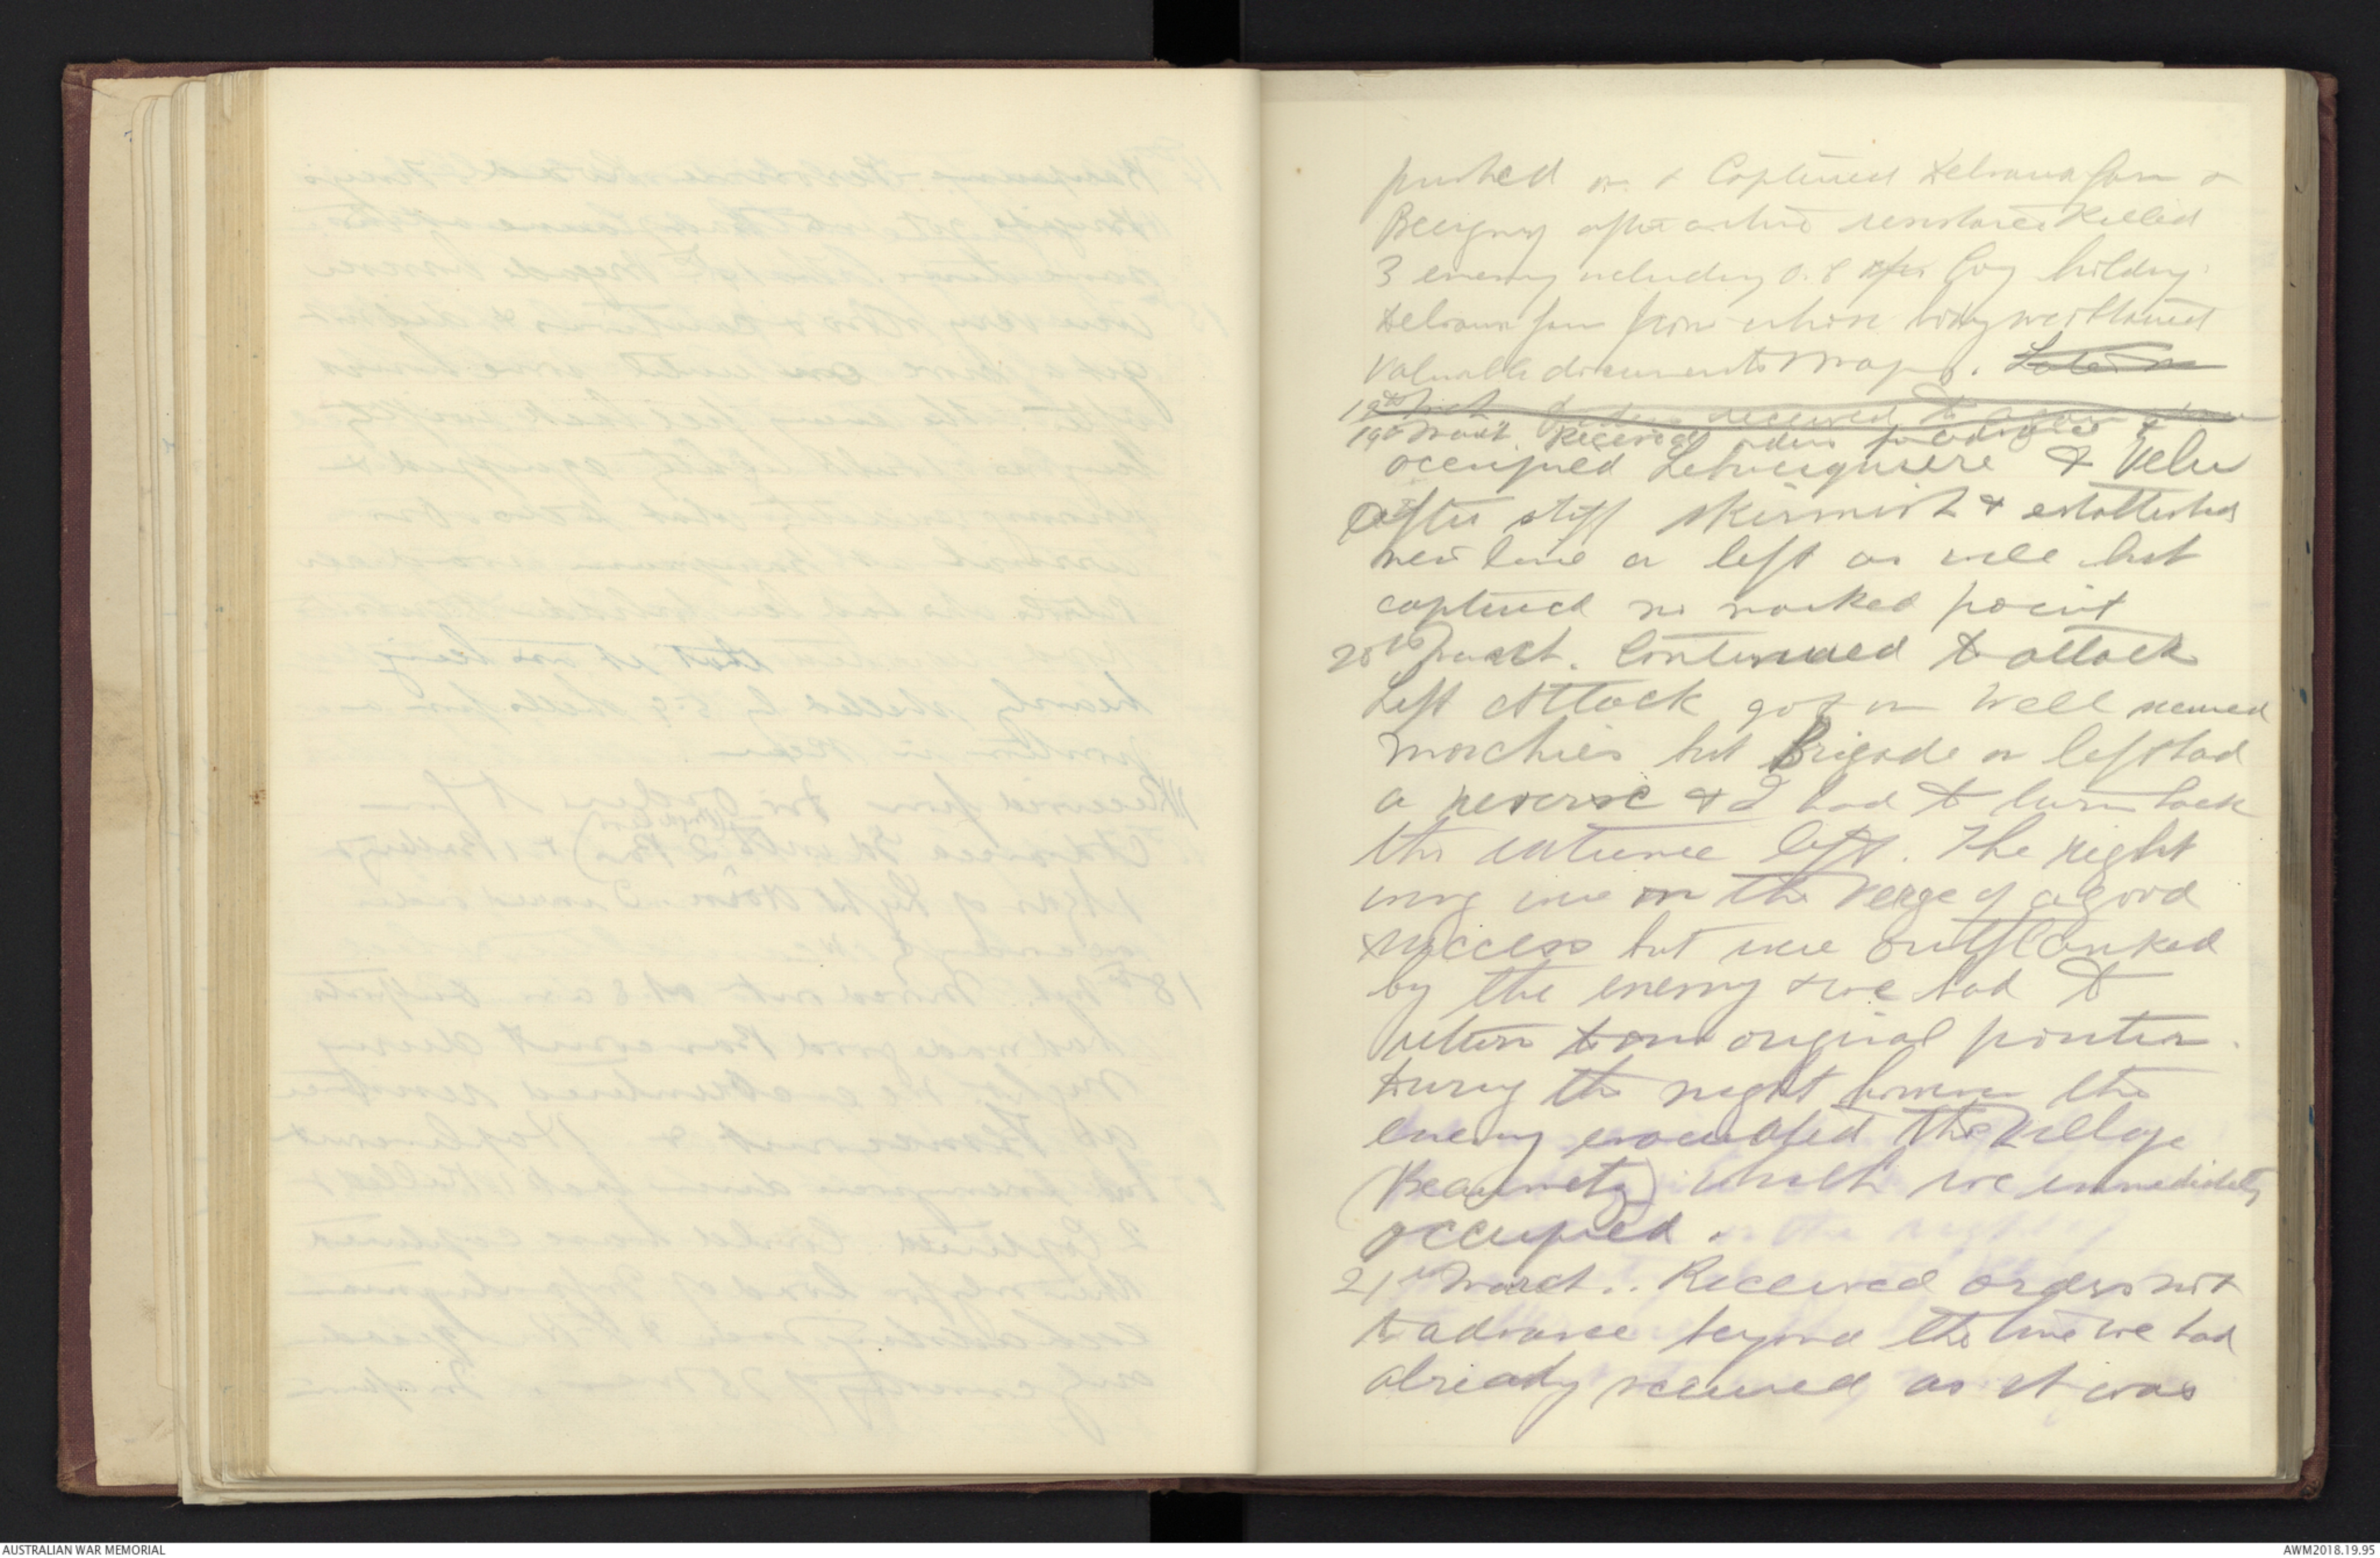 pushed on & Captured Delsaux farm &
Beugny after active resistance Killed
3 enemy including O.C. Coy holding
Delsaux farm from whose body we obtained
Valuable documents & maps. Later
19th Mch Orders received to
19th March. Received orders
occupied Lebucquiere & Velu
after stiff skirmish & established
new line a left as well but
captured no marked point
20th March. Continued to attack
Left attack got on well secured
Morchies but Brigade on left had
a reverse & I had to turn back
the extreme left. The right
wing were on the verge of a good
success but were outflanked
by the enemy & we had to
return to our original position.
During the night however the
enemy evacuated the village
(Beaumetz) which we immediately
occupied.
21st March.. Received orders not
to advance beyond the line we had
already secured as it was
AUSTRALIAN WAR MEMORIAL
AWM2018.19.95